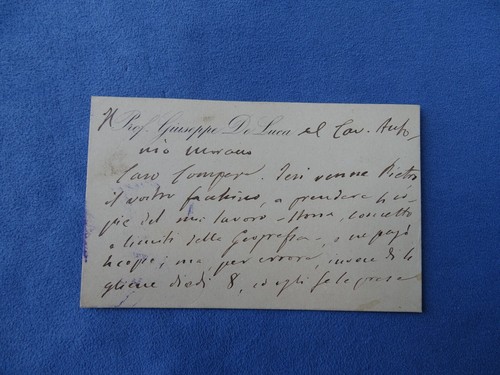 Il Prof. Giuseppe De Luca al Cav. Anto-
nio Morano
Caro Compare. Ieri venne Pietro
il vostro facchino, a prendere 10 co-
pie del mio lavoro - Storia, concetto
e limiti della Geografia -, e ne pagò
10 copie; ma per errore, invece di 10
gliene diedi 8, ed egli se le prese